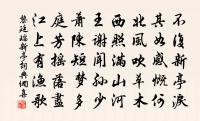 不復新亭淚
其如感慨何
北風吹草木
西照滿山河
王謝閒時少
蕭陳短夢多
庭芳搖落盡
江上有漁歌
黎廷瑞新亭詞典網集